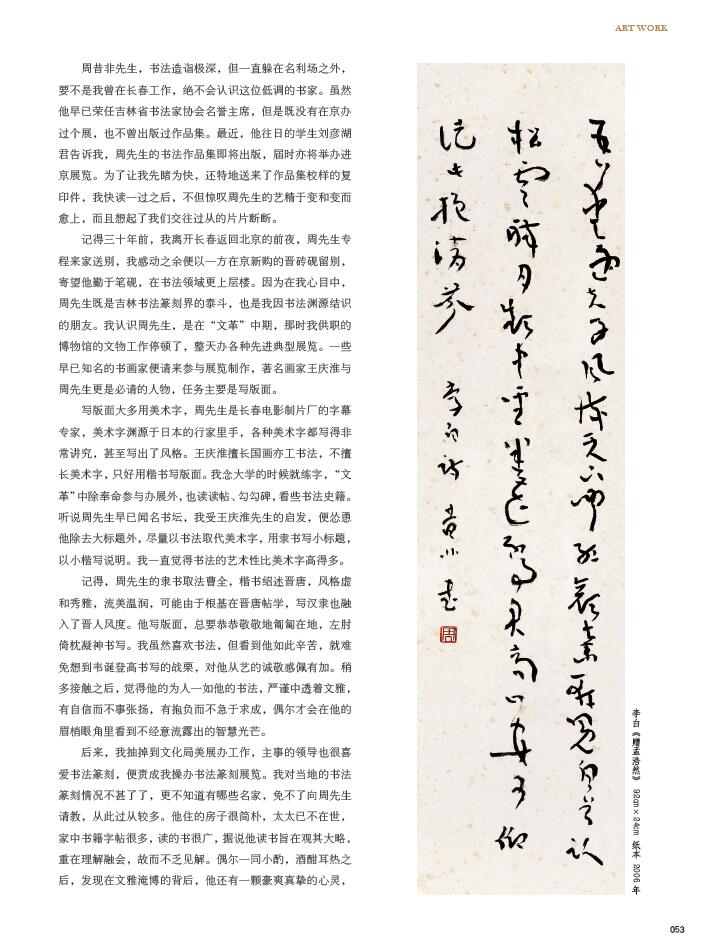 ART WORK
周昔非先生，书法造诣极深，但一直躲在名利场之外，
要不是我曾在长春工作，绝不会认识这位低调的书家。虽然
他早已荣任吉林省书法家协会名誉主席，但是既没有在京办
过个展，也不曾出版过作品集。最近，他往日的学生刘彦湖
君告诉我，周先生的书法作品集即将出版，届时亦将举办进
京展览。为了让我先睹为快，还特地送来了作品集校样的复
印件，我快读一过之后，不但惊叹周先生的艺精于变和变而
愈上，而且想起了我们交往过从的片片断断。
记得三十年前，我离开长春返回北京的前夜，周先生专
程来家送别，我感动之余便以一方在京新购的晋砖砚留别，
寄望他勤于笔砚，在书法领域更上层楼。因为在我心目中，
周先生既是吉林书法篆刻界的泰斗，也是我因书法渊源结识
的朋友。我认识周先生，是在“文革”中期，那时我供职的
博物馆的文物工作停顿了，整天办各种先进典型展览。一些
早已知名的书画家便请来参与展览制作，著名画家王庆淮与
周先生更是必请的人物，任务主要是写版面。
写版面大多用美术字，周先生是长春电影制片厂的字幕
专家，美术字渊源于日本的行家里手，各种美术字都写得非
常讲究，甚至写出了风格。王庆淮擅长国画亦工书法，不擅
长美术字，只好用楷书写版面。我念大学的时候就练字，“文
革”中除奉命参与办展外，也读读帖、勾勾碑，看些书法史籍。
听说周先生早已闻名书坛，我受王庆淮先生的启发，便怂恿
他除去大标题外，尽量以书法取代美术字，用隶书写小标题，
以小楷写说明。我一直觉得书法的艺术性比美术字高得多。
记得，周先生的隶书取法曹全，楷书绍述晋唐，风格虚
和秀雅，流美温润，可能由于根基在晋唐帖学，写汉隶也融
入了晋人风度。他写版面，总要恭恭敬敬地匍匐在地，左肘
倚枕凝神书写。我虽然喜欢书法，但看到他如此辛苦，就难
免想到韦诞登高书写的战栗，对他从艺的诚敬感佩有加。稍
多接触之后，觉得他的为人一如他的书法，严谨中透着文雅，
有自信而不事张扬，有抱负而不急于求成，偶尔才会在他的
眉梢眼角里看到不经意流露出的智慧光芒。
后来，我抽掉到文化局美展办工作，主事的领导也很喜
爱书法篆刻，便责成我操办书法篆刻展览。我对当地的书法
篆刻情况不甚了了，更不知道有哪些名家，免不了向周先生
请教，从此过从较多。他住的房子很简朴，太太已不在世，
家中书籍字帖很多，读的书很广，据说他读书旨在观其大略，
重在理解融会，故而不乏见解。偶尔一同小酌，酒酣耳热之
后，发现在文雅淹博的背后，他还有一颗豪爽真挚的心灵，
吾愛孟夫子風流天下聞紅顏棄軒冕白首臥
松雲醉月頻中聖迷花不事君高山安可仰
從此挹清芬 李白詩 昔非書
周
李白《赠孟浩然》 92cm×24cm 纸本 2006年
053